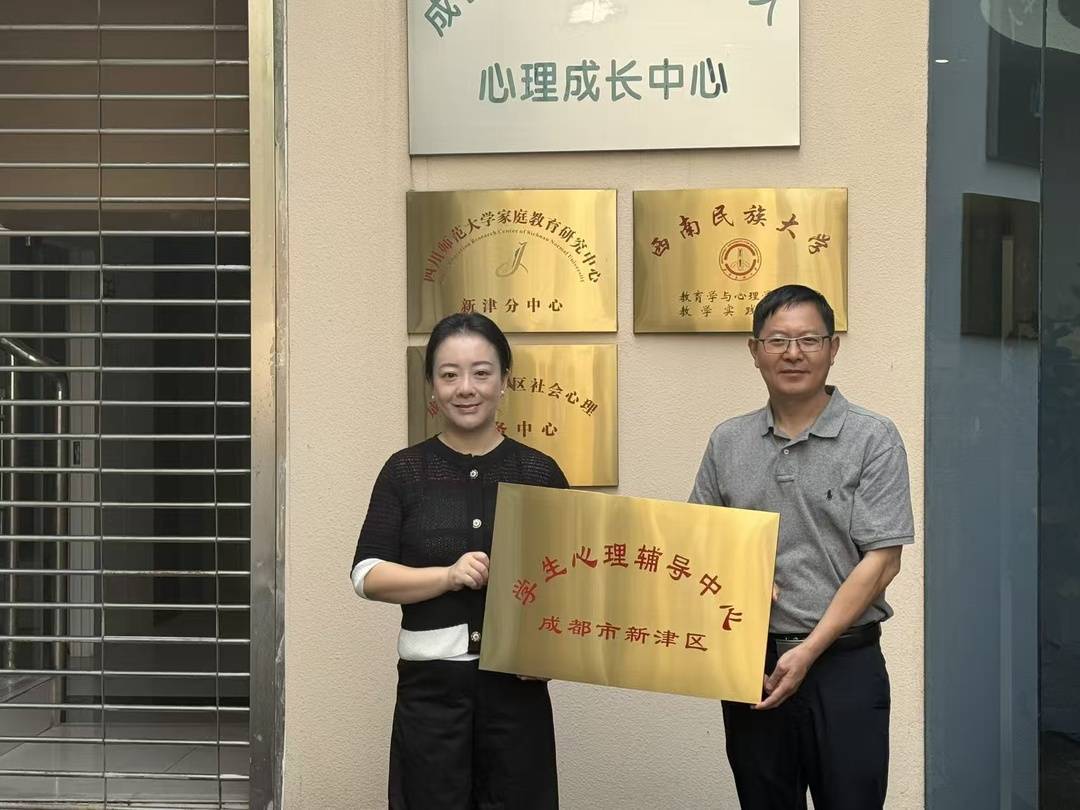 成
心理成长中心
四川师范大学家庭教育研究中心
Education Research Center of Sichuan Normal University
新津分中心
西南民族大学
教育学与心理学
教学实践
区社会心理
务中心
学生心理辅导中心
成都市新津区